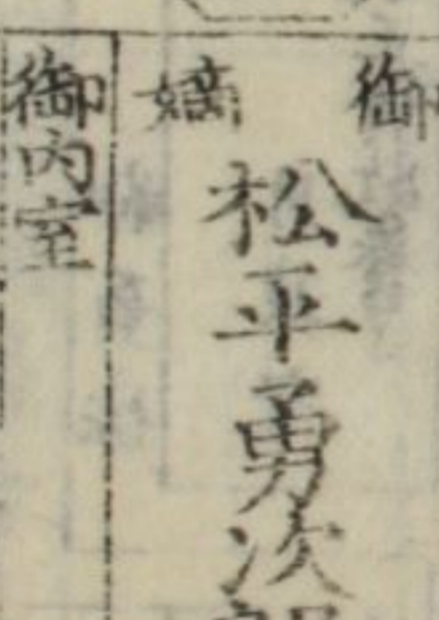 御嫡
松平勇次郎
御内室